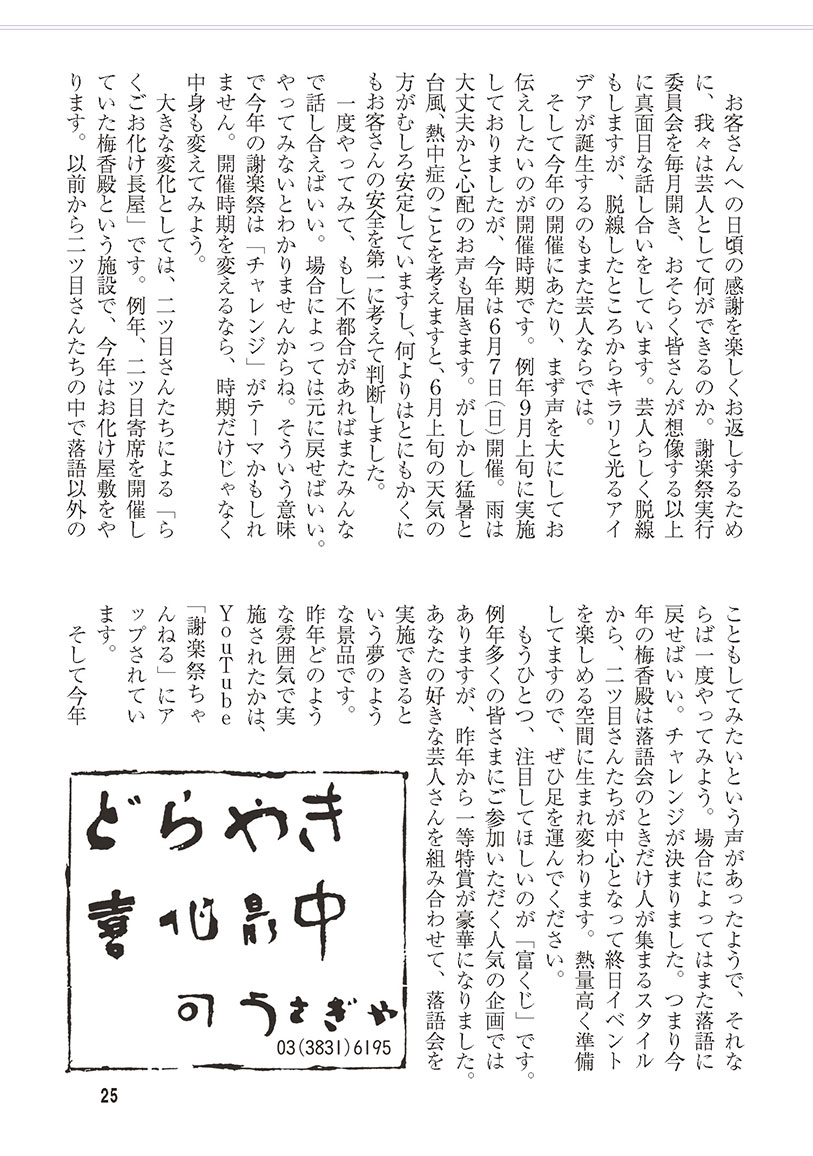 お客さんへの日頃の感謝を楽しくお返しするため
に、我々は芸人として何ができるのか。謝楽祭実行
委員会を毎月開き、おそらく皆さんが想像する以上
に真面目な話し合いをしています。芸人らしく脱線
もしますが、脱線したところからキラリと光るアイ
デアが誕生するのもまた芸人ならでは。
そして今年の開催にあたり、まず声を大にしてお
伝えしたいのが開催時期です。例年9月上旬に実施
しておりましたが、今年は6月7日(日)開催。雨は
大丈夫かと心配のお声も届きます。がしかし猛暑と
台風、熱中症のことを考えますと、6月上旬の天気の
方がむしろ安定していますし、何よりはとにもかくに
もお客さんの安全を第一に考えて判断しました。
一度やってみて、もし不都合があればまたみんな
で話し合えばいい。場合によっては元に戻せばいい。
やってみないとわかりませんからね。そういう意味
で今年の謝楽祭は「チャレンジ」がテーマかもしれ
ません。開催時期を変えるなら、時期だけじゃなく
中身も変えてみよう。
大きな変化としては、二ツ目さんたちによる「ら
くごお化け長屋」です。例年、二ツ目寄席を開催し
ていた梅香殿という施設で、今年はお化け屋敷をや
ります。以前から二ツ目さんたちの中で落語以外の
こともしてみたいという声があったようで、それな
らば一度やってみよう。場合によってはまた落語に
戻せばいい。チャレンジが決まりました。つまり今
年の梅香殿は落語会のときだけ人が集まるスタイル
から、二ツ目さんたちが中心となって終日イベント
を楽しめる空間に生まれ変わります。熱量高く準備
してますので、ぜひ足を運んでください。
もうひとつ、注目してほしいのが「富くじ」です。
例年多くの皆さまにご参加いただく人気の企画では
ありますが、昨年から一等特賞が豪華になりました。
あなたの好きな芸人さんを組み合わせて、落語会を
実施できると
いう夢のよう
な景品です。
昨年どのよう
な雰囲気で実
施されたかは、
YouTube
「謝楽祭ちゃ
んねる」にア
ップされてい
ます。
そして今年
どらやき
喜作最中
のうさぎや
03(3831)6195
25